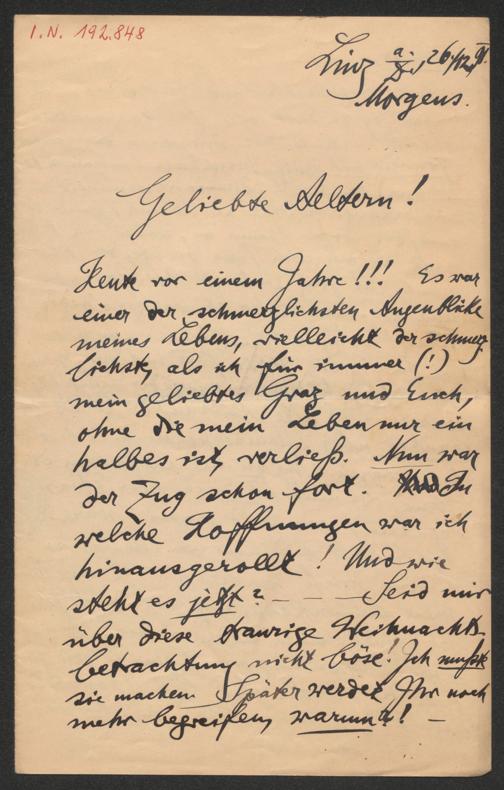 I.N. 192.848
Linz a. D., 26/12 91.
Morgens.
Geliebte Aeltern!
Heute vor einem Jahre!!! Es war
einer der schmerzlichsten Augenblicke
meines Lebens, vielleicht der schmerz-
lichste, als ich für immer (!)
mein geliebtes Graz und Euch,
ohne die mein Leben nur ein
halbes ist, verließ. Nun war
der Zug schon fort. In
welche Hoffnungen war ich
hinausgerollt! Und wie
steht es jetzt? – – – Seid mir
über diese traurige Weihnachts-
betrachtung nicht böse! Ich mußte
sie machen. Später werdet Ihr noch
mehr begreifen, warum?! –